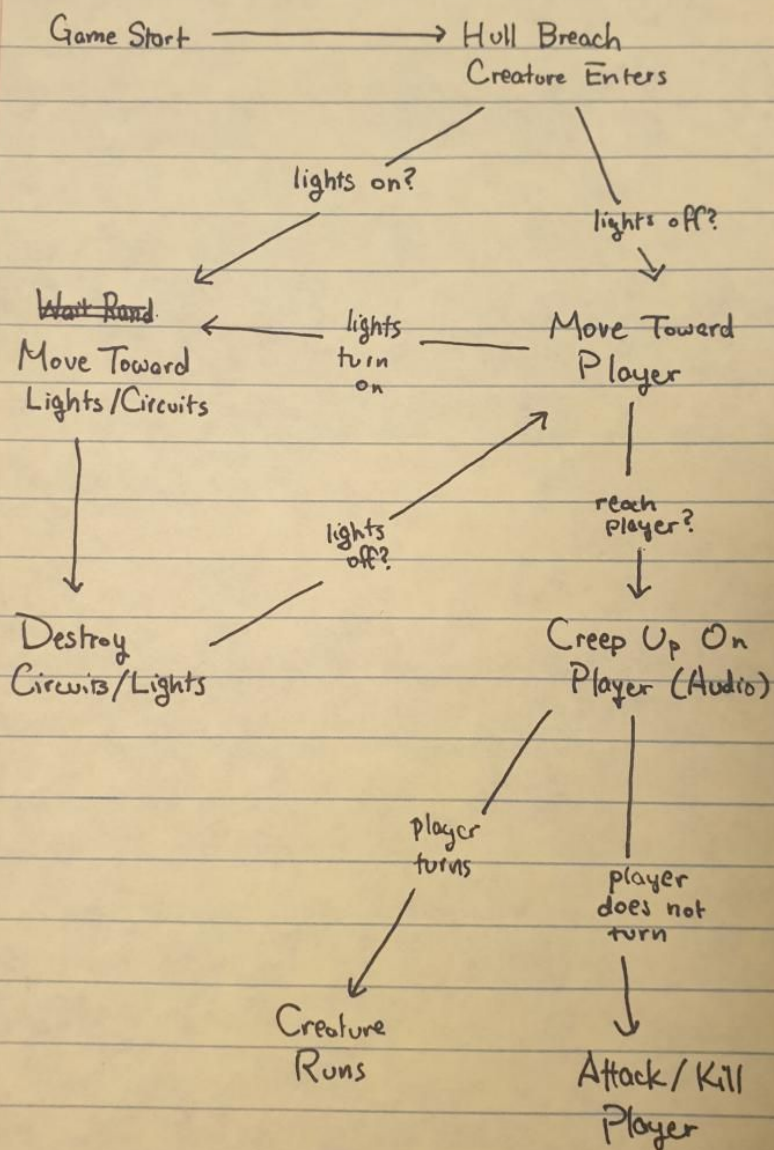 Game Start
Hull Breach
Creature Enters
lights on?
lights off?
Wait Rand.
Move Toward
Lights/Circuits
lights
turn
on
Move Toward
Player
lights
off?
reach
player?
Destroy
Circuits/Lights
Creep Up On
Player (Audio)
player
turns
player
does not
turn
Creature
Runs
Attack/Kill
Player